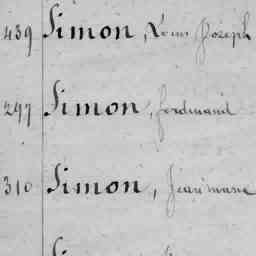 439 Simon, Louis Joseph
297 Simon, ferdinand
310 Simon, Jean marie
Simon